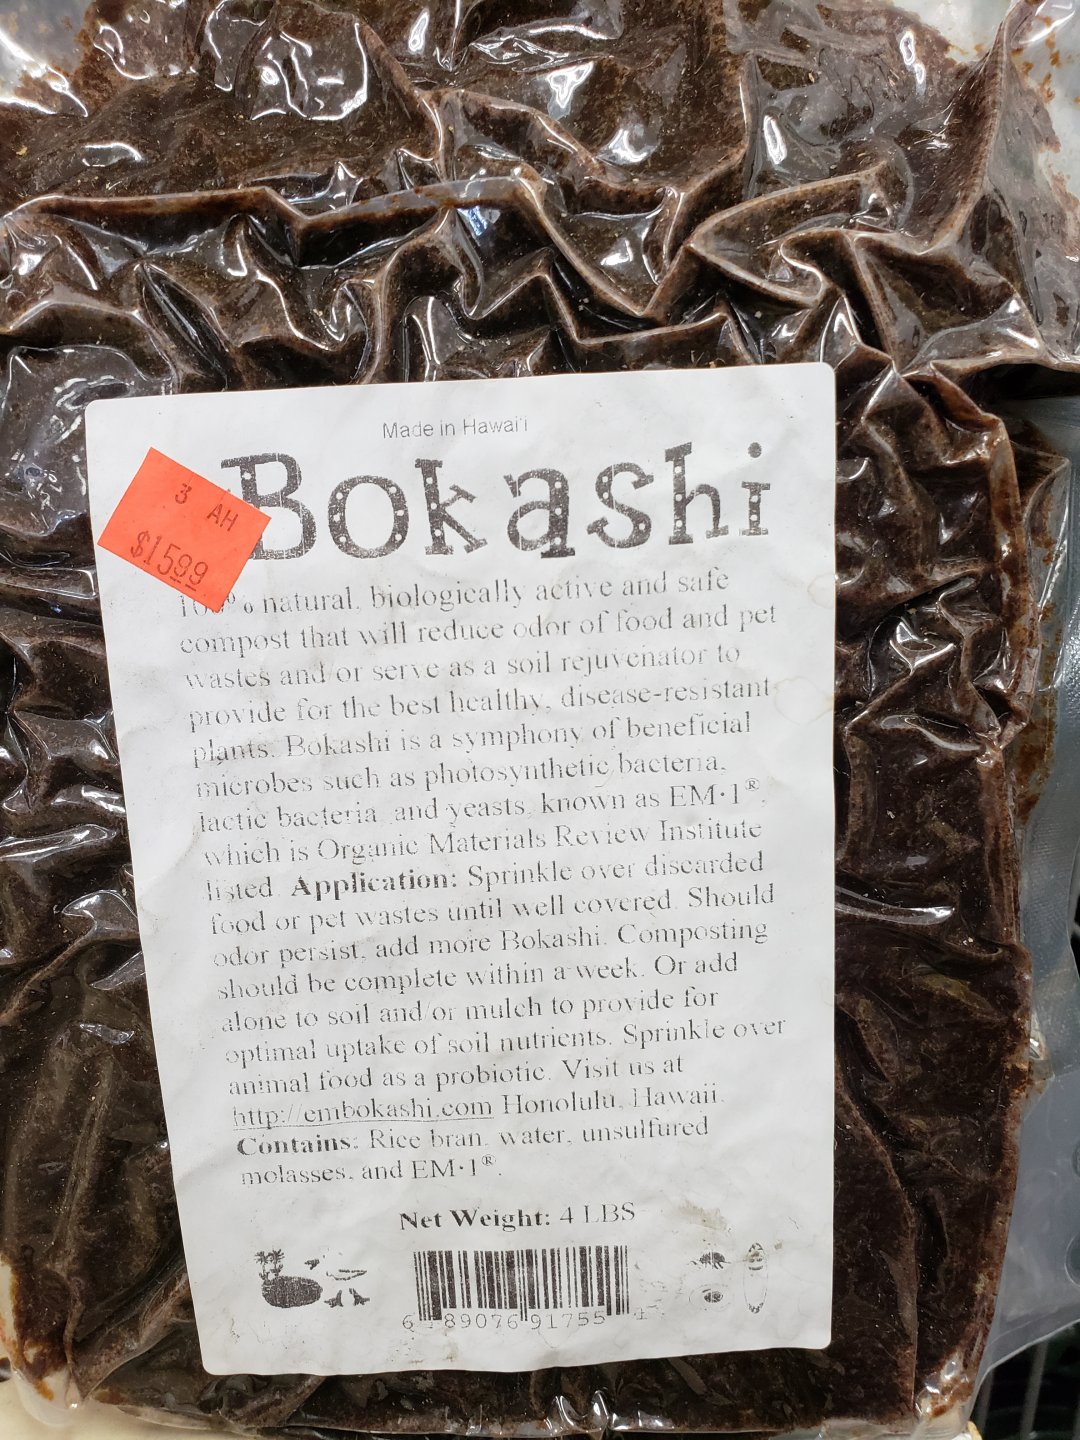 Made in Hawai'i
Bokashi
3 AH
$15.99
100% natural, biologically active and safe
compost that will reduce odor of food and pet
wastes and/or serve as a soil rejuvenator to
provide for the best healthy, disease-resistant
plants. Bokashi is a symphony of beneficial
microbes such as photosynthetic bacteria,
lactic bacteria, and yeasts, known as EM•1®,
which is Organic Materials Review Institute
listed. Application: Sprinkle over discarded
food or pet wastes until well covered. Should
odor persist, add more Bokashi. Composting
should be complete within a week. Or add
alone to soil and/or mulch to provide for
optimal uptake of soil nutrients. Sprinkle over
animal food as a probiotic. Visit us at
http://embokashi.com Honolulu, Hawaii.
Contains: Rice bran, water, unsulfured
molasses, and EM•1®.
Net Weight: 4 LBS
6 89076 91755